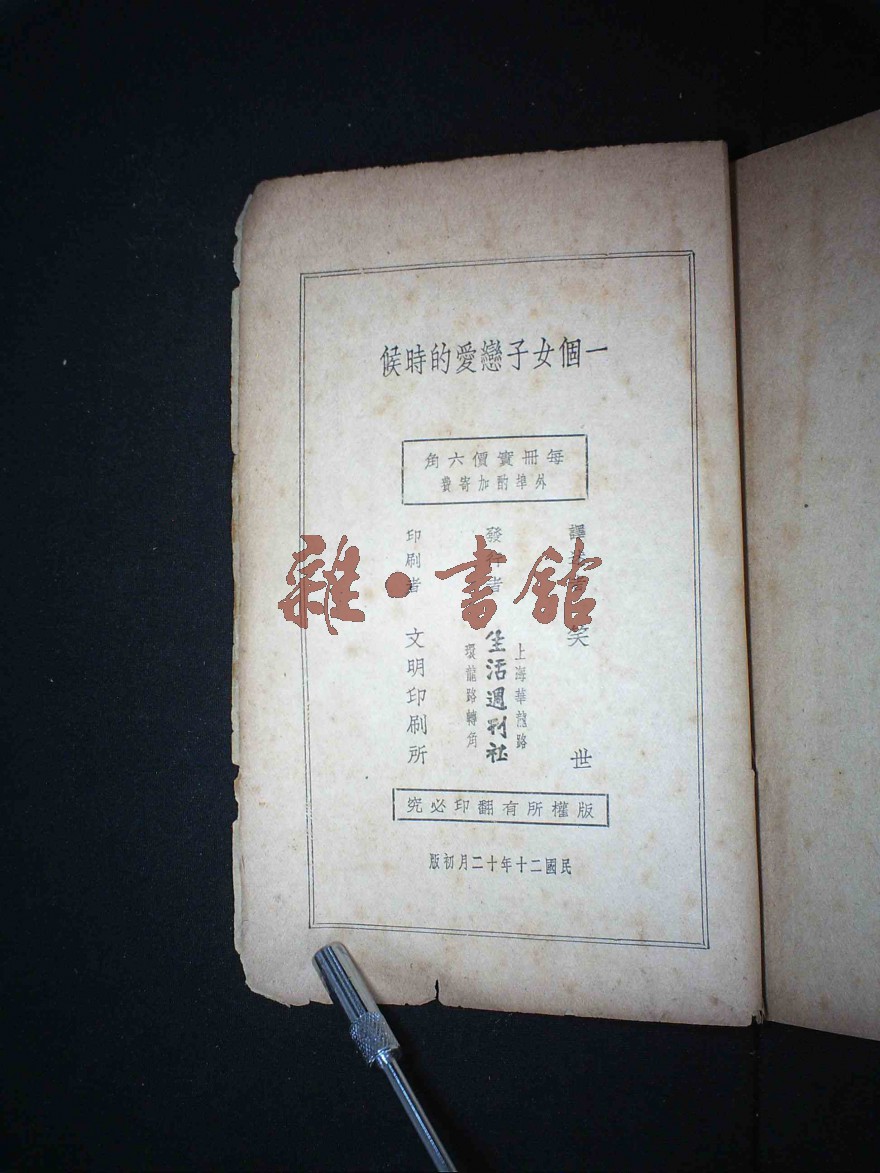 一個女子戀愛的時候
每冊實價六角
外埠酌加寄費
譯者 笑世
上海華龍路
發行者 生活週刊社
環龍路轉角
印刷者 文明印刷所
版權所有翻印必究
民國二十年十二月初版
雜·書館